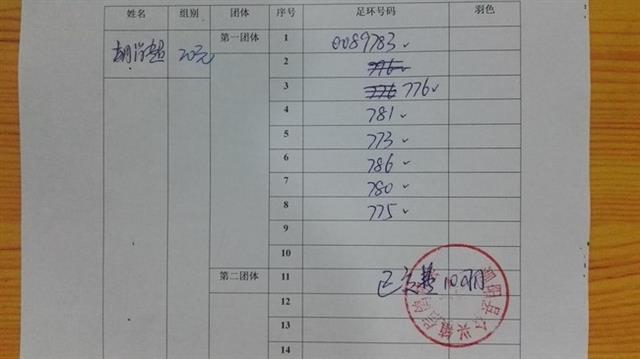 姓名 组别 团体 序号 足环号码 羽色
20元 第一团体 1 0089783
2 776
3 776 776
4 781
5 773
6 786
7 780
8 775
9
10
第二团体 11 已交费100
12
13
14